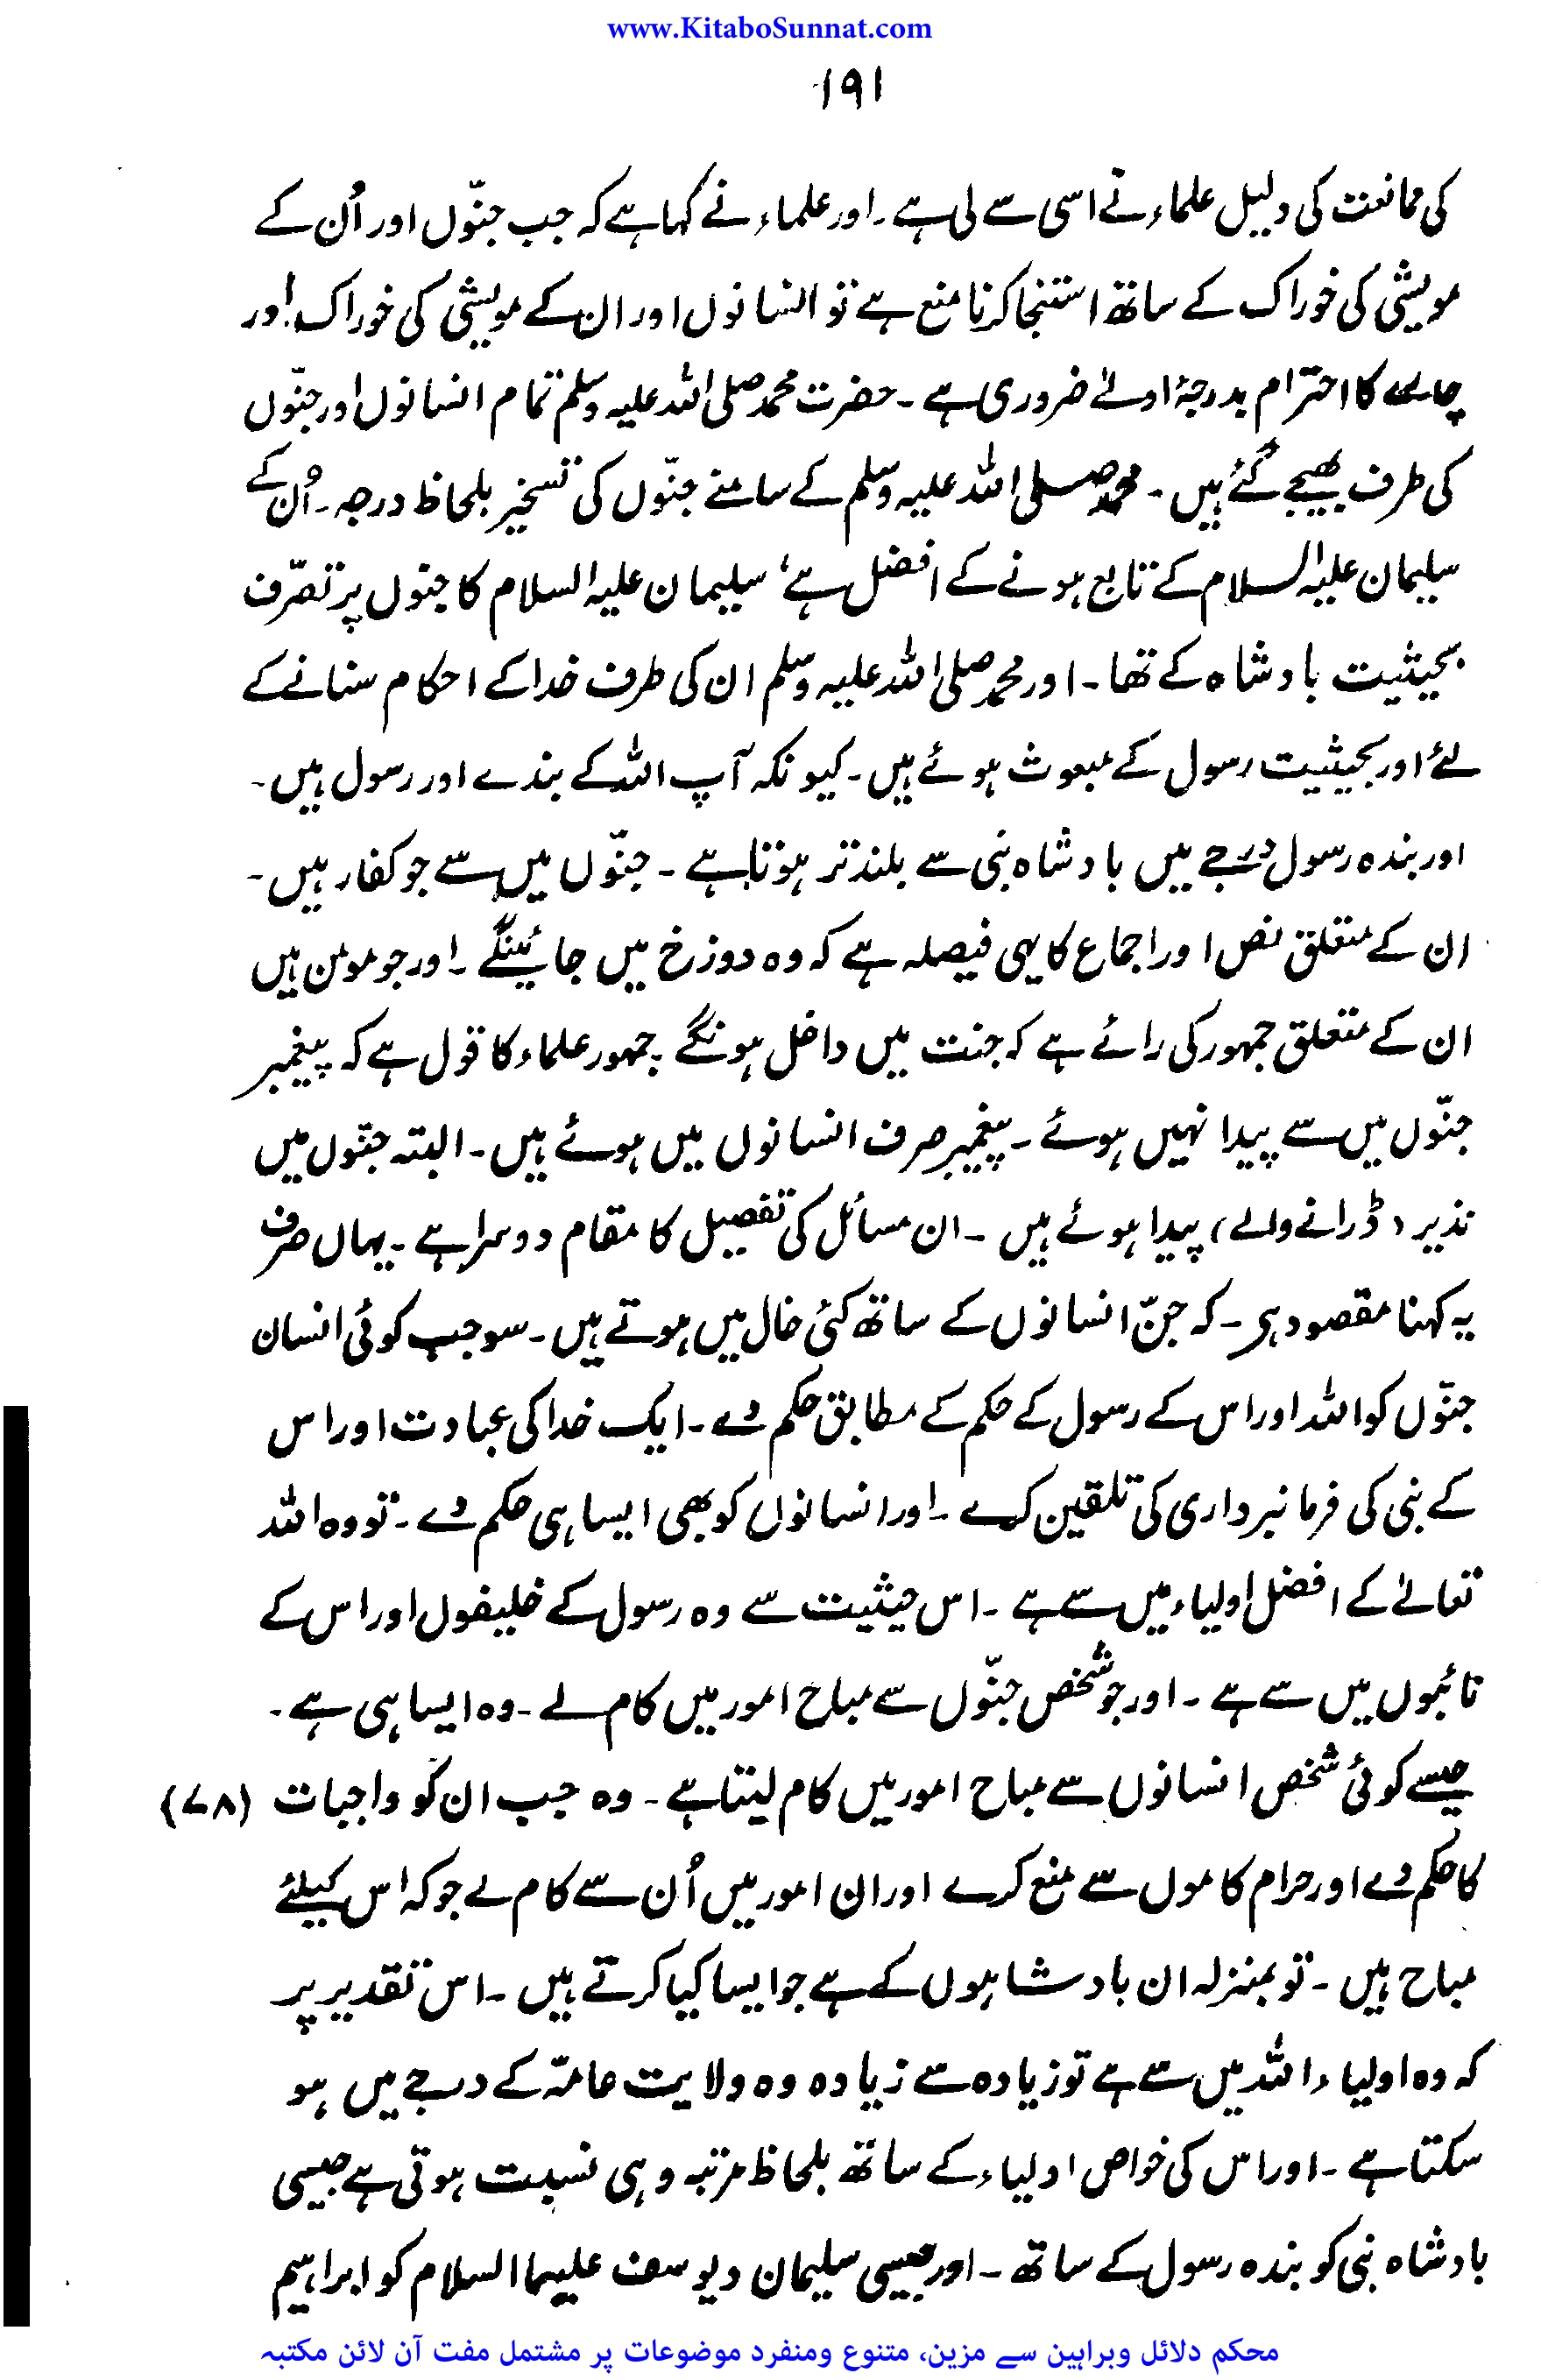 www.KitaboSunnat.com
۱۹۱
کی ممانعت کی دلیل علماء نے اسی سے لی ہے ۔ اور علماء نے کہا ہے کہ جب جنّوں اور اُن کے
مویشی کی خوراک کے ساتھ استنجا کرنا منع ہے تو انسانوں اور ان کے مویشی کی خوراک اور
چارے کا احترام بدرجۂ اولےٰ ضروری ہے ۔ حضرت محمد صلی اللہ علیہ وسلم تمام انسانوں اور جنّوں
کی طرف بھیجے گئے ہیں ۔ محمد صلی اللہ علیہ وسلم کے سامنے جنّوں کی تسخیر بلحاظ درجہ ۔ اُن کے
سلیمان علیہ السلام کے تابع ہونے کے افضل ہے ‘ سلیمان علیہ السلام کا جنوں پر تصرّف
بحیثیت بادشاہ کے تھا ۔ اور محمد صلی اللہ علیہ وسلم ان کی طرف خدا کے احکام سنانے کے
لئے اور بحیثیت رسول کے مبعوث ہوئے ہیں ۔ کیونکہ آپ اللہ کے بندے اور رسول ہیں ۔
اور بندہ رسول درجے میں بادشاہ نبی سے بلند تر ہوتا ہے ۔ جنّوں میں سے جو کفار ہیں ۔
ان کے متعلق نص اور اجماع کا یہی فیصلہ ہے کہ وہ دوزخ میں جائینگے ۔ اور جو مومن ہیں
ان کے متعلق جمہور کی رائے ہے کہ جنت میں داخل ہونگے ۔ جمہور علماء کا قول ہے کہ پیغمبر
جنّوں میں سے پیدا نہیں ہوئے ۔ پیغمبر صرف انسانوں میں ہوئے ہیں ۔ البتہ جنّوں میں
نذیر (ڈرانے والے) پیدا ہوئے ہیں ۔ ان مسائل کی تفصیل کا مقام دوسرا ہے ۔ یہاں صرف
یہ کہنا مقصود ہی ۔ کہ جنّ انسانوں کے ساتھ کئی خال میں ہوتے ہیں ۔ سو جب کوئی انسان
جنّوں کو اللہ اور اس کے رسول کے حکم کے مطابق حکم دے ۔ ایک خدا کی عبادت اور اس
کے نبی کی فرمانبرداری کی تلقین کرے ۔ اور انسانوں کو بھی ایسا ہی حکم دے ۔ تو وہ اللہ
تعالےٰ کے افضل اولیاء میں سے ہے ۔ اس حیثیت سے وہ رسول کے خلیفوں اور اس کے
نائبوں میں سے ہے ۔ اور جو شخص جنّوں سے مباح امور میں کام لے ۔ وہ ایسا ہی ہے ۔
جیسے کوئی شخص انسانوں سے مباح امور میں کام لیتا ہے ۔ وہ جب ان کو واجبات (۷۸)
کا حکم دے اور حرام کاموں سے منع کرے اور ان امور میں اُن سے کام لے جو کہ اس کیلئے
مباح ہیں ۔ تو بمنزلہ ان بادشاہوں کے ہے جو ایسا کیا کرتے ہیں ۔ اس تقدیر پر
کہ وہ اولیاء اللہ میں سے ہے تو زیادہ سے زیادہ وہ ولایت عامّہ کے درجے میں ہو
سکتا ہے ۔ اور اس کی خواص اولیاء کے ساتھ بلحاظ مرتبہ وہی نسبت ہوتی ہے جیسی
بادشاہ نبی کو بندہ رسول کے ساتھ ۔ اور جیسی سلیمان و یوسف علیہما السلام کو ابراہیم
محکم دلائل وبراہین سے مزین، متنوع ومنفرد موضوعات پر مشتمل مفت آن لائن مکتبہ